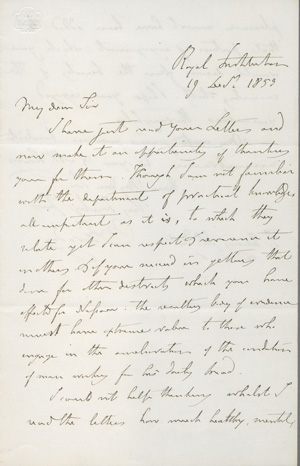 Royal Institution
19 Decr. 1853
My dear Sir
I have just read your Letters and
now make it an opportunity of thanking
you for them. Though I am not familiar
with the department of practical knowledge,
all important as it is, to which they
relate yet I can respect & reverence it
motives & of your mind in getting that
done for other districts which you have
effected for : the resulting body of evidence
must have extreme value to those who
engage in the amelioration of the condition
of man working for his daily bread.
I could not help thinking whilst I
read the letters how much healthy, mental,